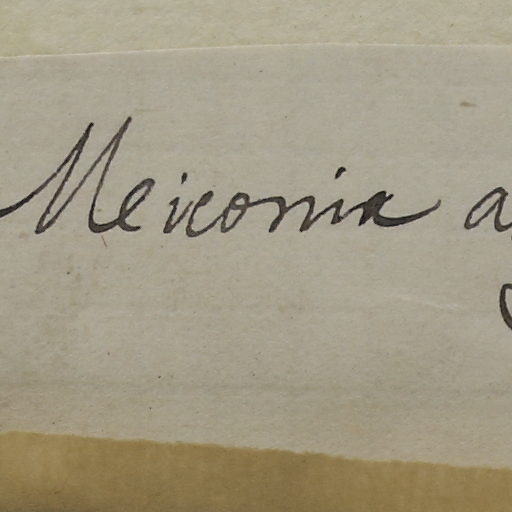 Meiconia a